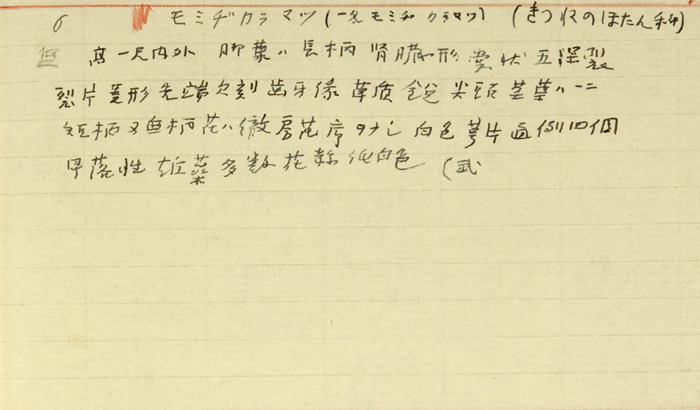 6 モミヂカラマツ (一名モミヂカラマツ) (きつねのぼたん科)
高一尺内外 脚葉ハ長柄 腎臓形 掌状五深裂
裂片菱形先端欠刻歯牙縁草质鋭尖頭茎葉ハ一二
短柄又無柄花ハ繖房花序ヲナシ白色萼片通例四個
早落性雄蕊多数花絲純白色 (武